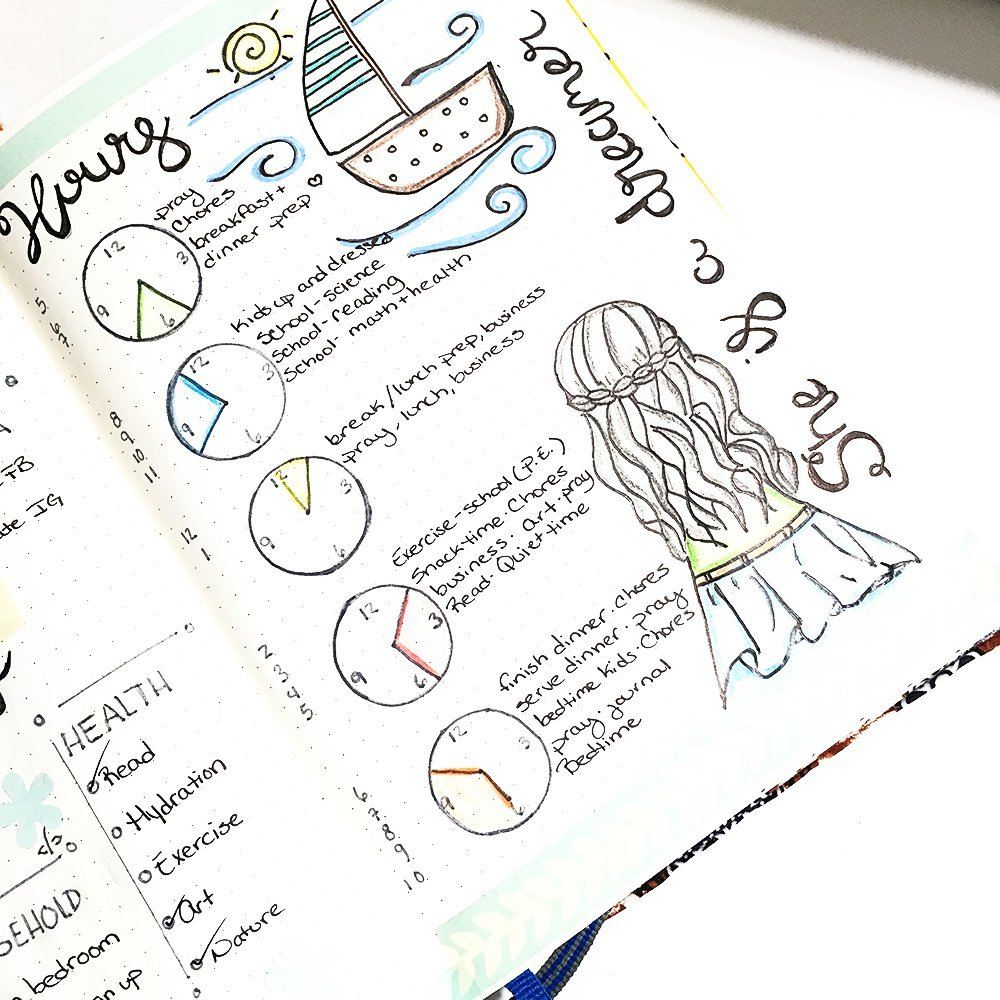 FB
IG
HEALTH
Read
Hydration
Exercise
Art
Nature
</>
bedroom
up
Hours
12
3
6
9
5
6
7
pray
Chores
breakfast +
dinner prep ♡
12
3
6
9
8
9
10
11
Kids up and dressed
School - science
School - reading
School - math + health
12
3
6
9
12
1
break/lunch prep, business
pray, lunch, business
12
3
6
9
2
3
4
5
Exercise - school (P.E.)
Snack-time · Chores
business · art · pray
Read · Quiet time
12
3
6
9
6
7
8
9
10
finish dinner · Chores
serve dinner · pray
bedtime kids · Chores
pray · journal
Bedtime
She is a dreamer